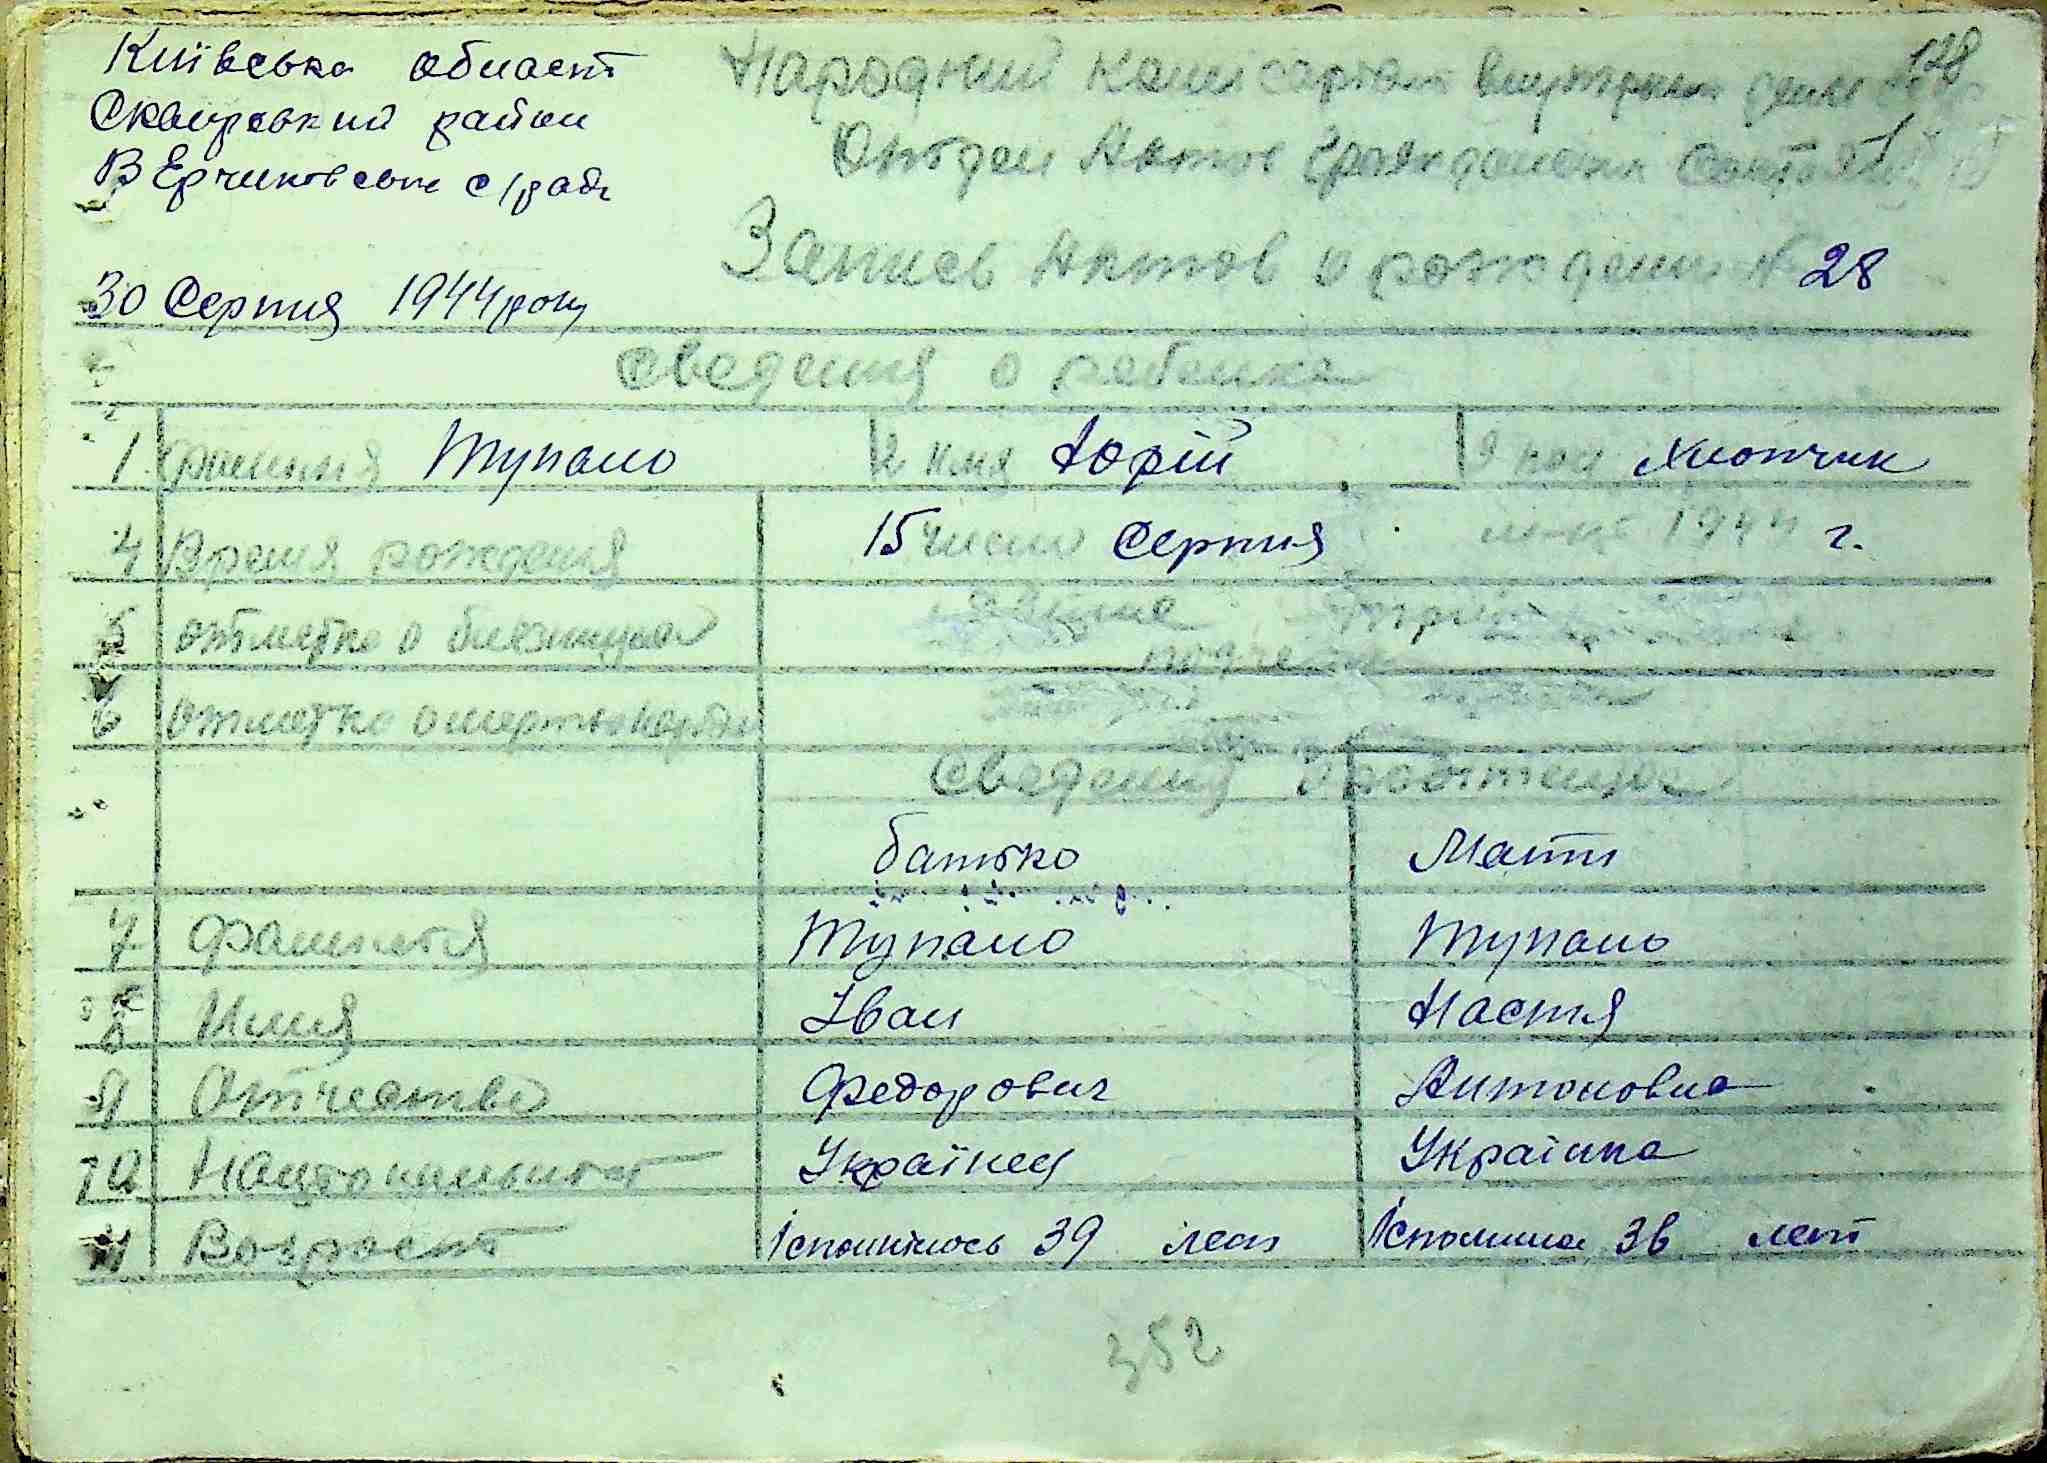 Київська област
Сквирський район
ВЕрчиковська с/рада
30 Серпня 1944 року
128
Народний комісаріат внутрених
Отдел Актов Гражданских
Запись Актов о рождении № 28
Сведения о ребенке
1 фамилия Тупало 2 имя Юрій 3 пол хлопчик
4 Время рождения 15 число Серпня м-ця 1944 г.
5 отметка о близнецах
6 отметка о мертворожден
Сведения о родителях
батько Мати
7 Фамилия Тупало Тупало
8 Имя Іван Настя
9 Отчество Федорович Антоновна
10 Национальност Українец Украінка
11 Возраст Ісполнілось 39 лет Ісполнилос 36 лет
352